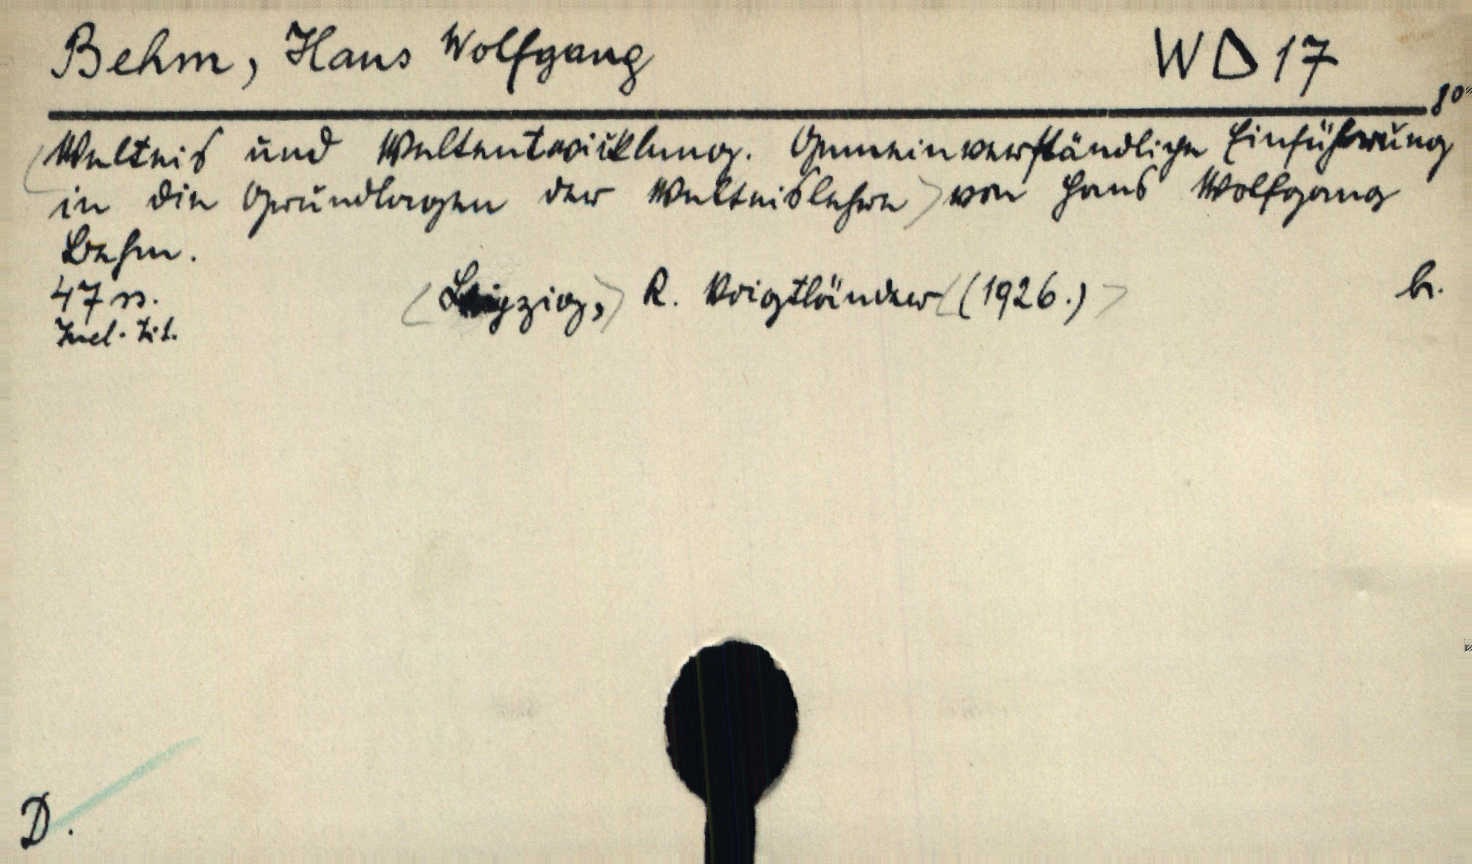 Behm, Hans Wolfgang WD 17
8°
Welteis und Weltentwicklung. Gemeinverständliche Einführung
in die Grundlagen der Welteislehre von Hans Wolfgang
Behm.
47 ss. (Leipzig,) R. Voigtländer (1926.) br.
Incl. tit.
D.